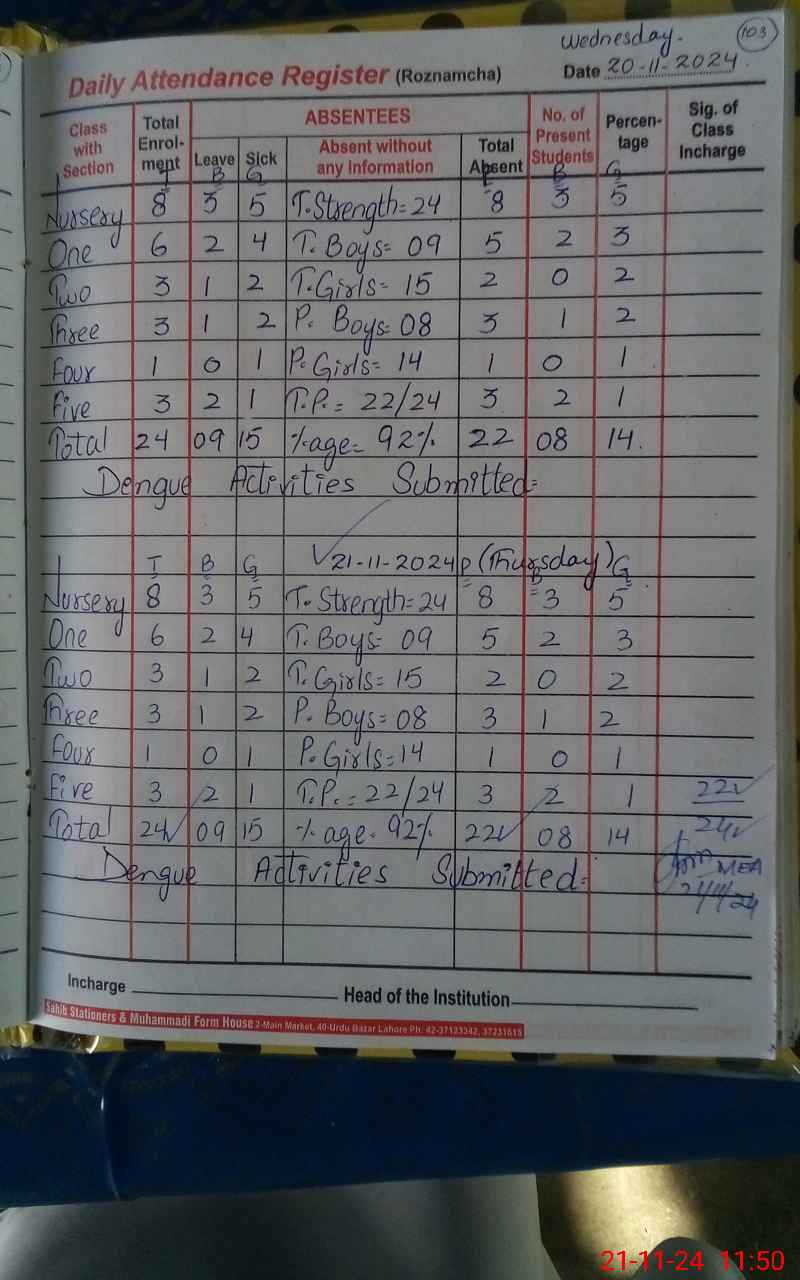 Wednesday. 103
Daily Attendance Register (Roznamcha) Date 20-11-2024.
Class with Section Total Enrol-ment ABSENTEES No. of Present Students Percen-tage Sig. of Class Incharge
Leave Sick Absent without any Information Total Absent
T B G P B G
Nursery 8 3 5 T.Strength=24 8 3 5
One 6 2 4 T. Boys= 09 5 2 3
Two 3 1 2 T.Girls= 15 2 0 2
Three 3 1 2 P. Boys=08 3 1 2
Four 1 0 1 P.Girls= 14 1 0 1
Five 3 2 1 T.P.= 22/24 3 2 1
Total 24 09 15 %age= 92% 22 08 14.
Dengue Activities Submitted=
T B G 21-11-2024 P (Thursday) B G
Nursery 8 3 5 T. Strength=24 8 3 5
One 6 2 4 T. Boys= 09 5 2 3
Two 3 1 2 T. Girls= 15 2 0 2
Three 3 1 2 P. Boys=08 3 1 2
Four 1 0 1 P.Girls=14 1 0 1
Five 3 2 1 T.P.=22/24 3 2 1 22
Total 24 09 15 %age= 92% 22 08 14 24
Dengue Activities Submitted= MEA
21/11/24
Incharge Head of the Institution
Sahib Stationers & Muhammadi Form House 2-Main Market, 40-Urdu Bazar Lahore Ph: 42-37123342, 37231615
21-11-24 11:50